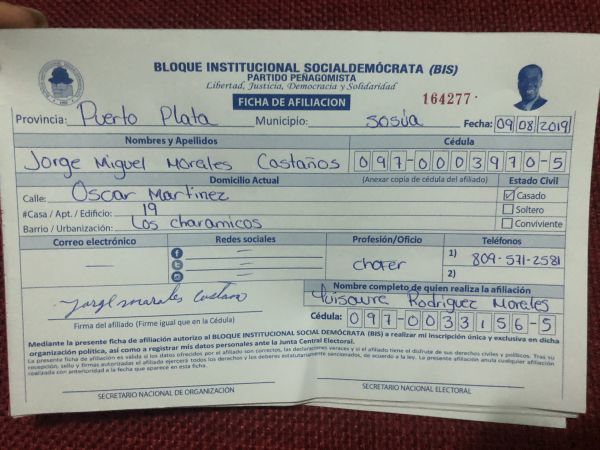 BLOQUE INSTITUCIONAL SOCIALDEMÓCRATA (BIS)
PARTIDO PEÑAGOMISTA
Libertad, Justicia, Democracia y Solidaridad
FICHA DE AFILIACION
164277
Provincia: Puerto Plata Municipio: sosúa Fecha: 09 08 2019
Nombres y Apellidos Cédula
Jorge Miguel Morales Castaños 097-0003970-5
Domicilio Actual (Anexar copia de cédula del afiliado) Estado Civil
Calle: Oscar Martinez Casado
#Casa / Apt. / Edificio: 19 Soltero
Barrio / Urbanización: Los charamicos Conviviente
Correo electrónico Redes sociales Profesión/Oficio Teléfonos
— — chofer 1) 809-571-2581
— 2)
—
Nombre completo de quien realiza la afiliación
Jorge morales Castano Luisaura Rodriguez Morales
Firma del afiliado (Firme igual que en la Cédula) Cédula: 097-0033156-5
Mediante la presente ficha de afiliación autorizo al BLOQUE INSTITUCIONAL SOCIAL DEMÓCRATA (BIS) a realizar mi inscripción única y exclusiva en dicha
organización política, así como a registrar mis datos personales ante la Junta Central Electoral.
La presente ficha de afiliación es válida si los datos ofrecidos por el afiliado son correctos, las declaraciones veraces y si el afiliado tiene el disfrute de sus derechos civiles y políticos. Tras su
recepción, sello y firmas autorizadas el afiliado ejercerá todos los derechos y los deberes estatutariamente sancionados, de acuerdo a la ley. La presente afiliación anula cualquier afiliación
realizada con anterioridad a la fecha que aparece en esta ficha.
SECRETARIO NACIONAL DE ORGANIZACIÓN SECRETARIO NACIONAL ELECTORAL